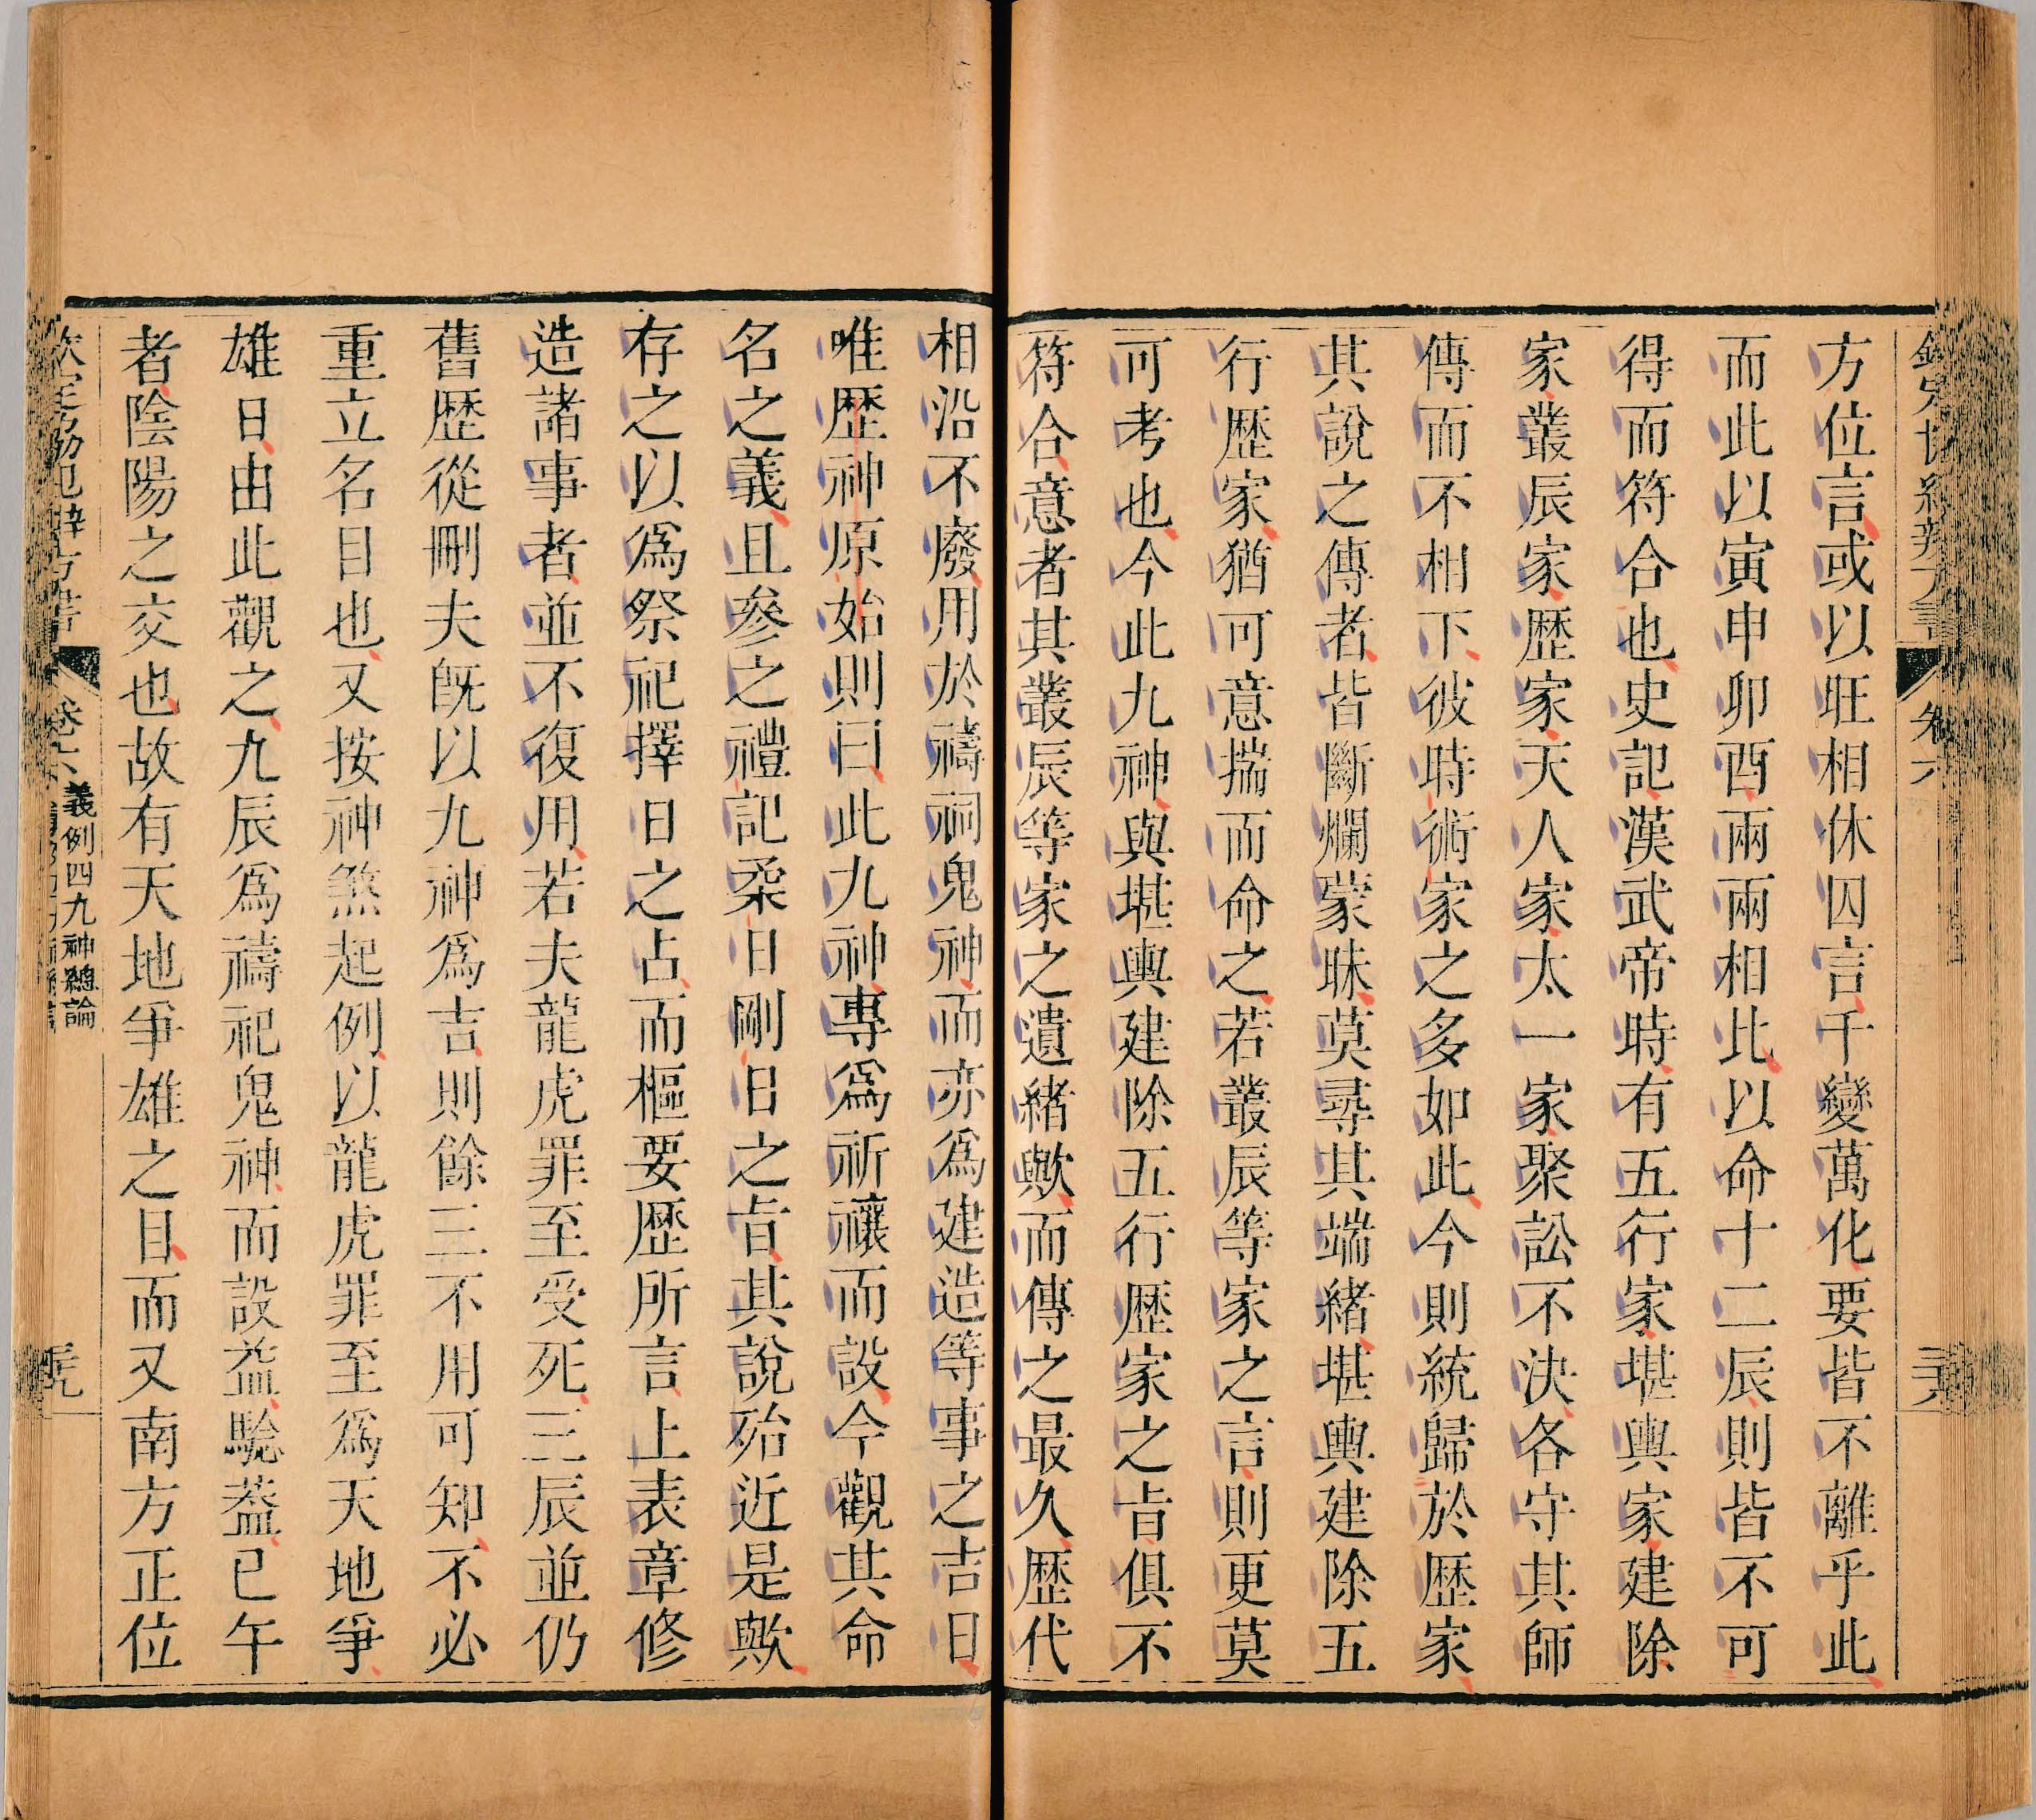 欽定協紀辨方書 卷六
方位言或以旺相休囚言千變萬化要皆不離乎此
而此以寅申卯酉兩兩相比以命十二辰則皆不可
得而符合也史記漢武帝時有五行家堪輿家建除
家叢辰家歷家天人家太一家聚訟不決各守其師
傳而不相下彼時術家之多如此今則統歸於歷家
其說之傳者皆斷爛蒙昧莫尋其端緒堪輿建除五
行歷家猶可意揣而命之若叢辰等家之言則更莫
可考也今此九神與堪輿建除五行歷家之㫖俱不
符合意者其叢辰等家之遺緒歟而傳之最久歷代
相沿不廢用於禱祠鬼神而亦為建造等事之吉日
唯歷神原始則曰此九神專為祈禳而設今觀其命
名之義且參之禮記柔日剛日之㫖其說殆近是歟
存之以為祭祀擇日之占而樞要歷所言上表章修
造諸事者並不復用若夫龍虎罪至受死三辰並仍
舊歷從刪夫旣以九神為吉則餘三不用可知不必
重立名目也又按神煞起例以龍虎罪至為天地爭
雄日由此觀之九辰為禱祀鬼神而設益驗蓋巳午
者陰陽之交也故有天地爭雄之目而又南方正位
欽定協紀辨方書 卷六 義例四九神總論